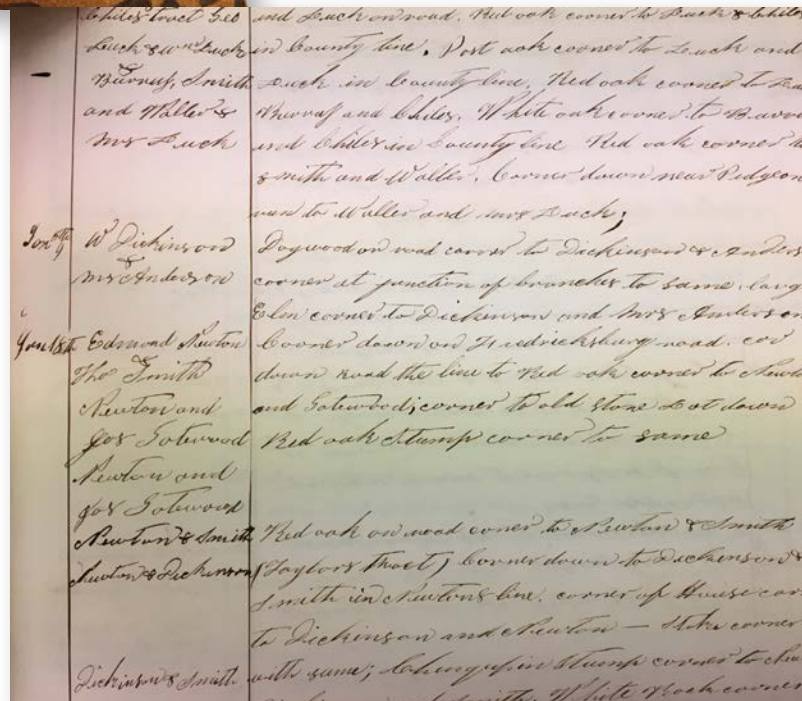 Chiles tract Geo and Luck on road. Red oak corner to Luck & Chiles
Luck & Wm Luck in County line. Post oak corner to Luck and
Burruss, Smith Luck in County line. Red oak corner to
and Waller & Burruss and Chiles. White oak corner to
Mrs Luck and Chiles in County line Red oak corner
Smith and Waller. Corner down near Pidgeon
run to Waller and Mrs Luck;
Jan 9th W Dickinson Dogwood on road corner to Dickinson &
& Mrs Anderson corner at junction of branches to same.
Elm corner to Dickinson and Mrs Anderson
Jan 18th Edmond Newton Corner down on Fredricksburg road. cor
Tho Smith down road the line to Red oak corner to
Newton and and Gatewood; corner to old stone Lot down
Jos Gatewood Red oak Stump corner to same
Newton and
Jos Gatewood
Newton & Smith Red oak on road corner to Newton & Smith
Newton & Dickinson (Taylors tract) Corner down to Dickenson &
Smith in Newtons line. corner of House
to Dickinson and Newton — Stake corner
Dickinson & Smith with same; Stump corner to
Smith. White corner